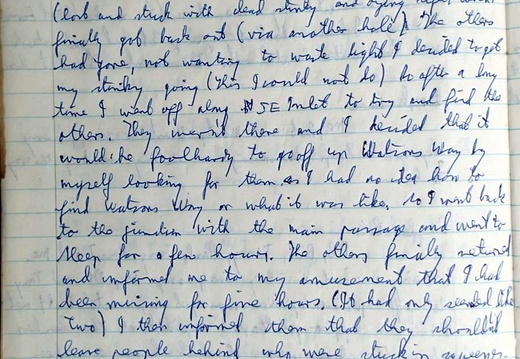 (lost and stuck with dead stinky and dying
finally got back out (via another hole). The others
had gone, not wanting to waste light I decided to get
my stinky going (this I could not do) So after a long
time I went off along SE Inlet to try and find the
others. They weren't there and I decided that it
would be foolhardy to go off up Watsons Way by
myself looking for them as I had no idea how to
find Watsons Way or what it was like, so I went back
to the junction with the main passage and went to
sleep for a few hours. The others finally returned
and informed me to my amusement that I had
been missing for five hours. (It had only seemed like
two) I then informed them that they shouldn't
leave people behind who were